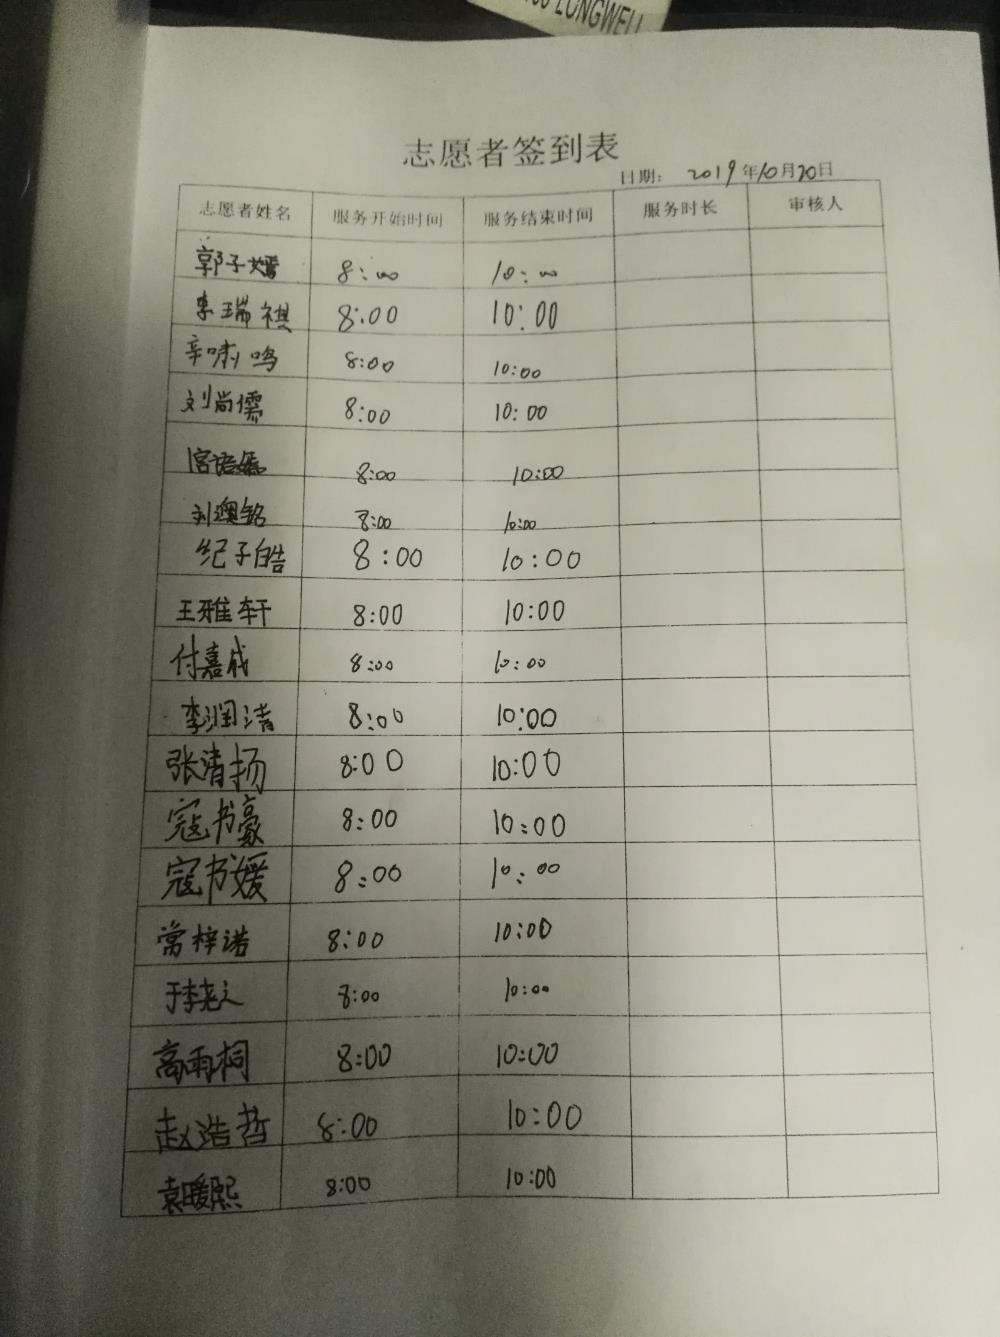 LONGWELL
志愿者签到表
日期： 2019年10月20日
志愿者姓名 服务开始时间 服务结束时间 服务时长 审核人
郭子嫣 8:00 10:00
李瑞祺 8:00 10:00
辛啸鸣 8:00 10:00
刘尚儒 8:00 10:00
宫语嫣 8:00 10:00
刘澳铭 8:00 10:00
纪子皓 8:00 10:00
王雅轩 8:00 10:00
付嘉成 8:00 10:00
李润洁 8:00 10:00
张清扬 8:00 10:00
寇书豪 8:00 10:00
寇书媛 8:00 10:00
常梓诺 8:00 10:00
8:00 10:00
高雨桐 8:00 10:00
赵浩哲 8:00 10:00
袁暖熙 8:00 10:00